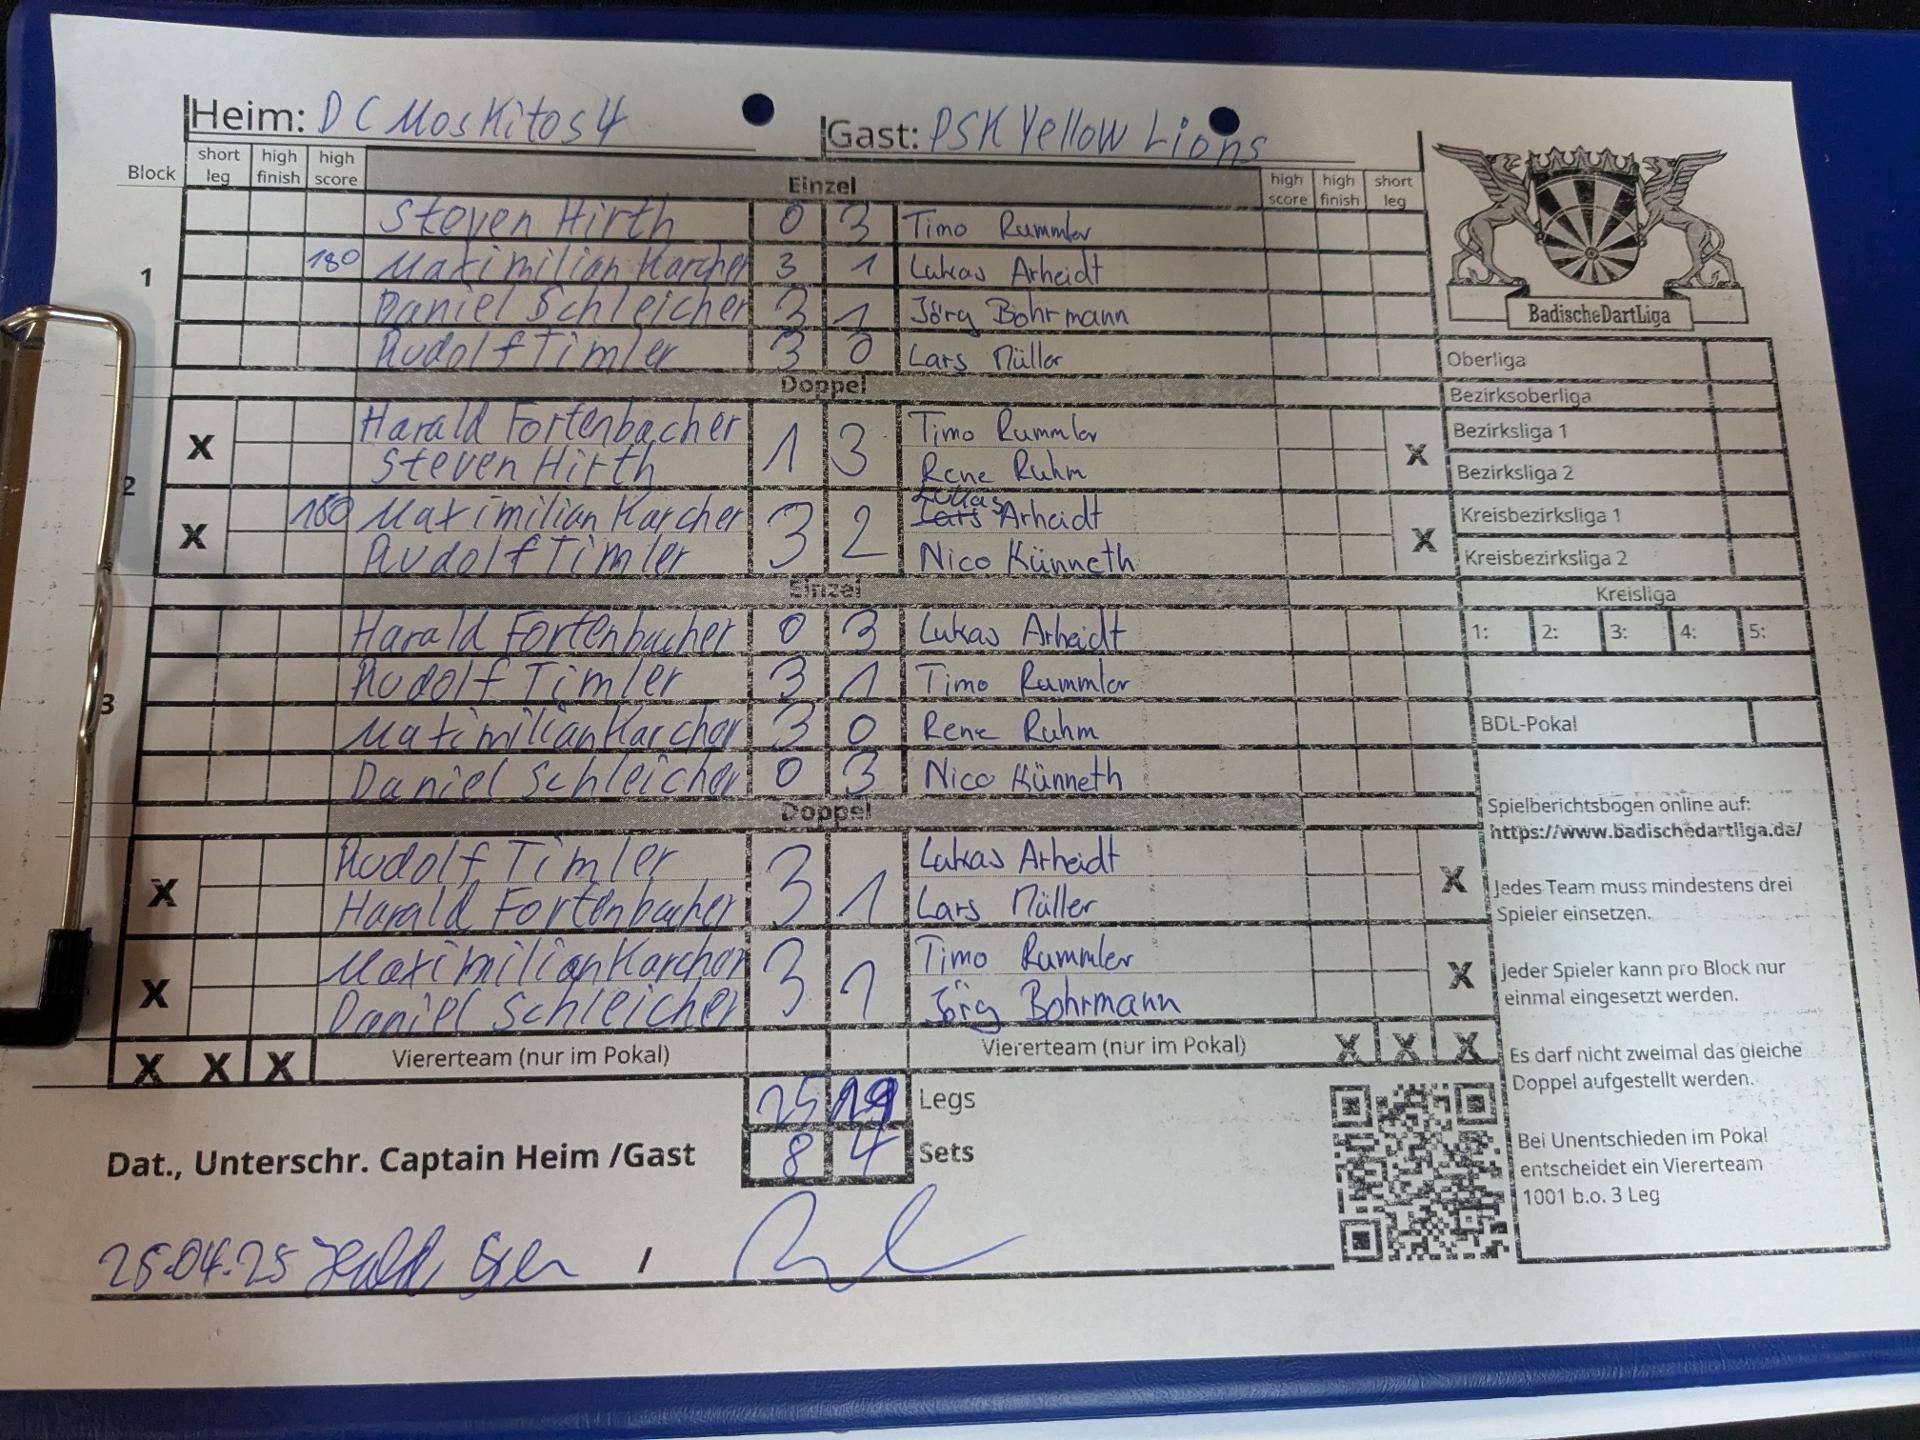 Heim: DC Moskitos 4 Gast: PSK Yellow Lions
Block short leg high finish high score Einzel high score high finish short leg
Steven Hirth 0 3 Timo Rummler
1 180 Maximilian Karcher 3 1 Lukas Arheidt
Daniel Schleicher 3 1 Jörg Bohrmann
Rudolf Timler 3 0 Lars Müller
Doppel
Harald Fortenbacher 1 3 Timo Rummler
X Steven Hirth Rene Ruhm X
2 180 Maximilian Karcher 3 2 Lukas Lars Arheidt
X Rudolf Timler Nico Künneth X
Einzel
Harald Fortenbacher 0 3 Lukas Arheidt
Rudolf Timler 3 1 Timo Rummler
3 Maximilian Karcher 3 0 Rene Ruhm
Daniel Schleicher 0 3 Nico Künneth
Doppel
Rudolf Timler 3 1 Lukas Arheidt
X Harald Fortenbacher Lars Müller X
Maximilian Karcher 3 1 Timo Rummler
X Daniel Schleicher Jörg Bohrmann X
X X X Viererteam (nur im Pokal) Viererteam (nur im Pokal) X X X
25 19 Legs
8 4 Sets
Dat., Unterschr. Captain Heim /Gast
25.04.25 /
BadischeDartLiga
Oberliga
Bezirksoberliga
Bezirksliga 1
Bezirksliga 2
Kreisbezirksliga 1
Kreisbezirksliga 2
Kreisliga
1: 2: 3: 4: 5:
BDL-Pokal
Spielberichtsbogen online auf:
https://www.badischedartliga.de/
Jedes Team muss mindestens drei
Spieler einsetzen.
Jeder Spieler kann pro Block nur
einmal eingesetzt werden.
Es darf nicht zweimal das gleiche
Doppel aufgestellt werden.
Bei Unentschieden im Pokal
entscheidet ein Viererteam
1001 b.o. 3 Leg